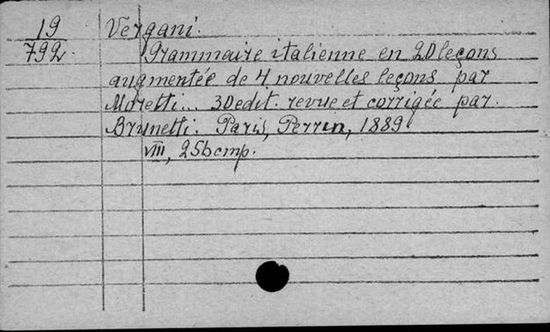 19
792.
Vergani.
Grammaire italienne en 20 leçons
augmentée de 4 nouvelles leçons par
Moretti... 30 edit. revue et corrigée par.
Brunetti. Paris, Perrin, 1889
VIII, 256 cmp.